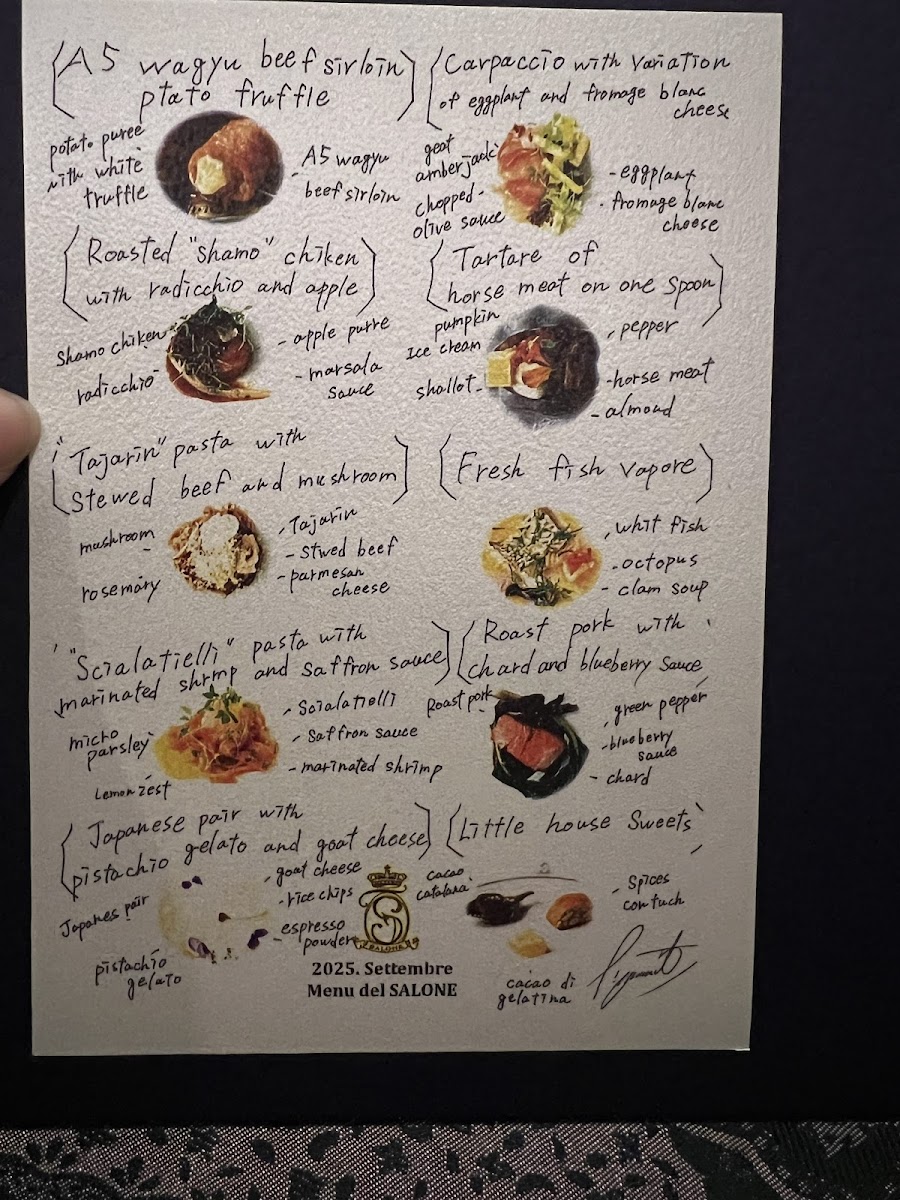 A5 wagyu beef sirloin
ptato truffle
potato puree
with white
truffle
A5 wagyu
beef sirloin
Carpaccio with variation
of eggplant and fromage blanc
cheese
geat
amberjack
chopped
olive sauce
eggplant
fromage blanc
cheese
Roasted "shamo" chiken
with radicchio and apple
Shamo chiken
radicchio
apple purre
marsala
sauce
Tartare of
horse meat on one spoon
pumpkin
Ice cream
shallot
pepper
horse meat
almond
"Tajarin" pasta with
stewed beef and mushroom
mushroom
rosemary
Tajarin
Stwed beef
parmesan
cheese
Fresh fish vapore
whit fish
octopus
clam soup
"Scialatielli" pasta with
marinated shrmp and saffron sauce
micro
parsley
Lemon zest
Scialatielli
saffron sauce
marinated shrimp
Roast pork with
chard and blueberry sauce
Roast pork
green pepper
blueberry
sauce
chard
Japanese pair with
pistachio gelato and goat cheese
Japanes pair
pistachio
gelato
goat cheese
rice chips
espresso
powder
SALONE
2025. Settembre
Menu del SALONE
Little house sweets
cacao
catalana
Spices
contuch
cacao di
gelatina